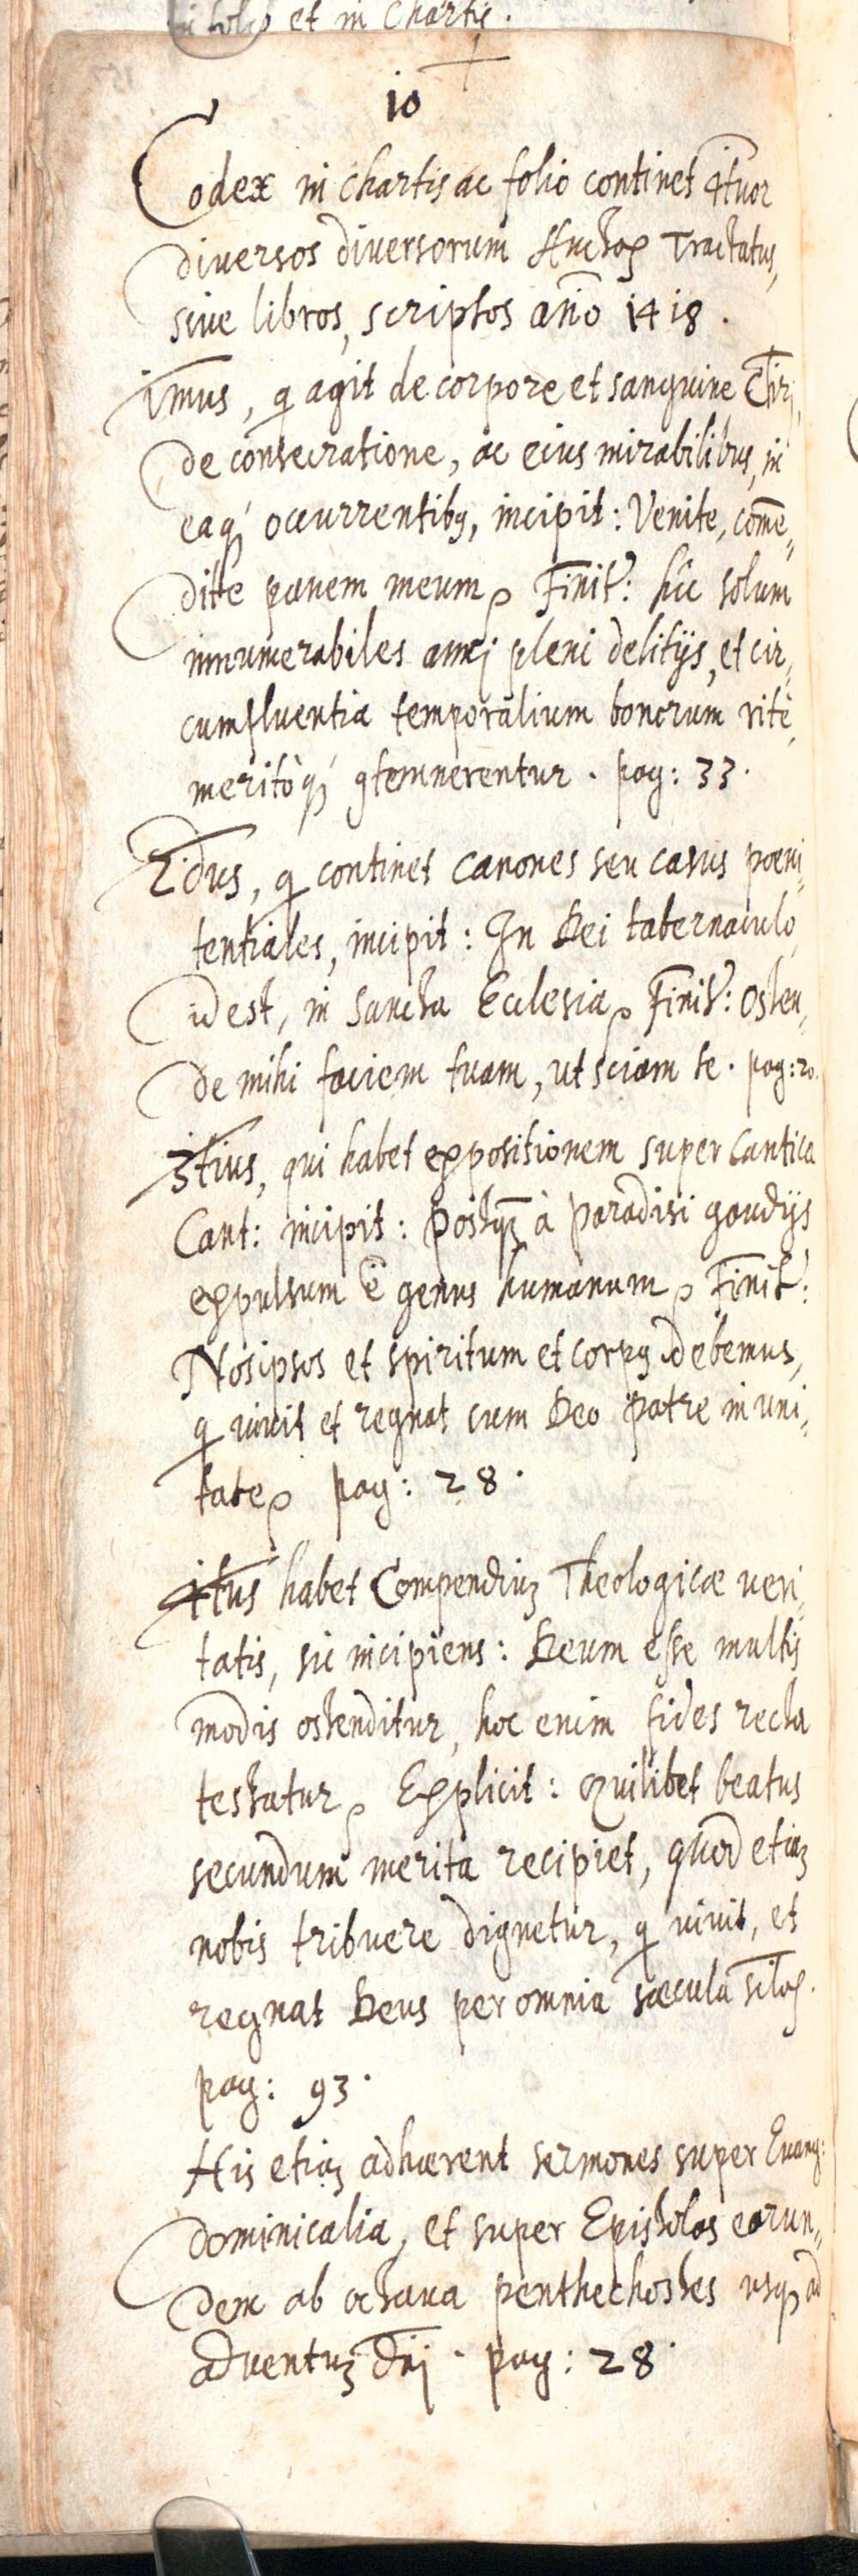 folio et in Chartis.
10
Codex in chartis ac folio continet 4tuor
diversos diversorum Auctoꝝ Tractatus,
sive libros, scriptos año 1418.
1mus, q agit de corpore et sanguine Chri,
de consecratione, ac eius mirabilibus, in
eaq́ occurrentibꝫ, incipit: Venite, come„
dite panem meum ꝛ Finit: hic solum
innumerabiles amcj pleni delitijs, et cir„
cumfluentia temporalium bonorum ritè,
meritòq́ ꝯtemnerentur. pag: 33.
2dus, q continet canones seu casus poeni„
tentiales, incipit: In Dei tabernaculo,
id est, in Sancta Ecclesia ꝛ Finit: Osten„
de mihi faciem tuam, ut sciam te. pag: 20.
3tius, qui habet expositionem super Cantica
Cant: incipit: Postqꝫ à paradisi gaudijs
expulsum ē genus humanum ꝛ Finit:
Nosipsos et spiritum et corpꝫ debemus,
q vivit et regnat cum Deo patre in uni„
tate ꝛ pag: 28.
4tus habet Compendiuꝫ Theologicæ veri„
tatis, sic incipiens: Deum esse multis
modis ostenditur, hoc enim fides recta
testatur ꝛ Explicit: Quilibet beatus
secundum merita recipiet, quod etiaꝫ
nobis tribuere dignetur, q vivit, et
regnat Deus per omnia sæcula scloꝝ.
pag: 93.
His etiaꝫ adhærent sermones super Evang:
dominicalia, et super Epistolas earun„
dem ab octava penthechostes usqꝫ ad
adventuꝫ Dnj. pag: 28.